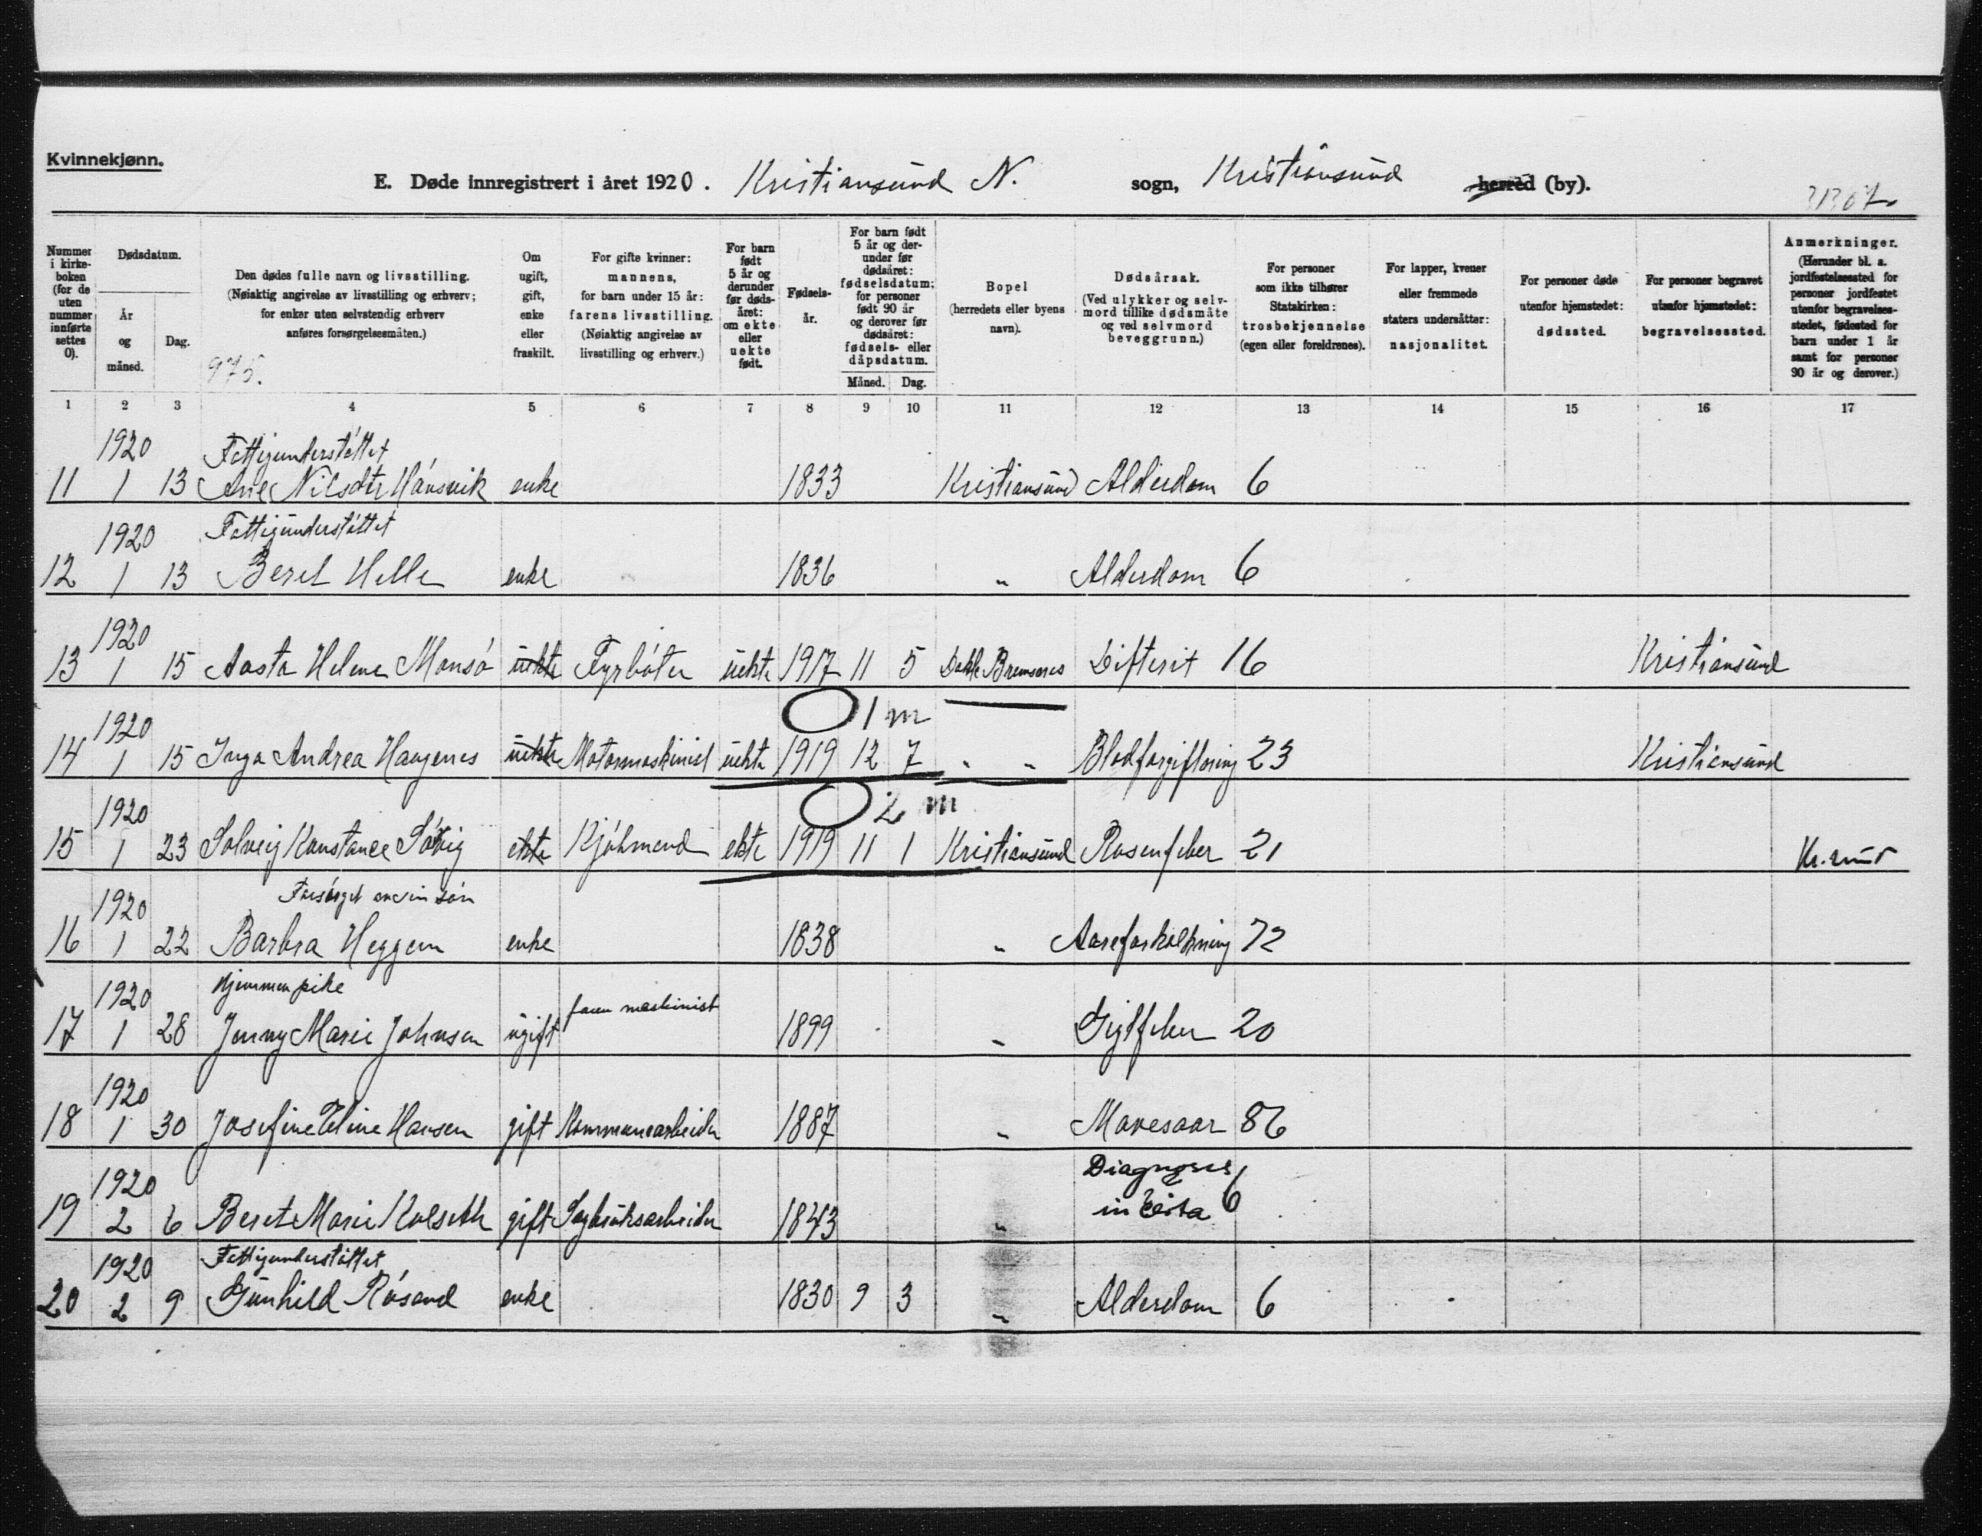 Kvinnekjønn.
E. Døde innregistrert i året 1920. Kristiansund N. sogn, Kristiansund herred (by).
Nummer i kirkeboken (for de uten nummer innførte settes 0).
Dødsdatum.
År og måned.
Dag.
Den dødes fulle navn og livsstilling. (Nøiaktig angivelse av livsstilling og erhverv; for enker uten selvstendig erhverv anføres forsørgelsesmåten.)
975.
Om ugift, gift, enke eller fraskilt.
For gifte kvinner: mannens, for barn under 15 år: farens livsstilling. (Nøiaktig angivelse av livsstilling og erhverv.)
For barn født 5 år og derunder før dødsåret: om ekte eller uekte født.
Fødselsår.
For barn født 5 år og derunder før dødsåret: fødselsdatum; for personer født 90 år og derover før dødsåret: fødsels- eller dåpsdatum.
Måned. Dag.
Bopel (herredets eller byens navn).
Dødsårsak. (Ved ulykker og selvmord tillike dødsmåte og ved selvmord beveggrunn.)
For personer som ikke tilhører Statskirken: trosbekjennelse (egen eller foreldrenes).
For lapper, kvener eller fremmede staters undersåtter: nasjonalitet.
For personer døde utenfor hjemstedet: dødssted.
For personer begravet utenfor hjemstedet: begravelsessted.
Anmerkninger. (Herunder bl. a. jordfestelsessted for personer jordfestet utenfor begravelsesstedet, fødested for barn under 1 år samt for personer 90 år og derover.)
1 2 3 4 5 6 7 8 9 10 11 12 13 14 15 16 17
1920 Fattigunderstøttet
11 1 13 Ane Nilsdtr Hansvik enke 1833 Kristiansund Alderdom 6
1920 Fattigunderstøttet
12 1 13 Beret Helle enke 1836 " Alderdom 6
1920
13 1 15 Aasta Helene Monsø uekte Fyrbøter uekte 1917 11 5 Dale Bremsnes Difterit 16 Kristiansund
1920 1 m
14 1 15 Inga Andrea Haugenes uekte Motormaskinist uekte 1919 12 7 " " Blodforgiftning 23 Kristiansund
1920 2 m
15 1 23 Solveig Konstance Søvig ekte Kjøbmand ekte 1919 11 1 Kristiansund Rosenfeber 21 Kr.sund
1920 Forsørget av sin søn
16 1 22 Barbra Heggem enke 1838 " Aareforkalkning 72
1920 Hjemmen pike
17 1 28 Jenny Marie Johnsen ugift faren maskinist 1899 " Gigtfeber 20
1920
18 1 30 Josefine Eline Hansen gift Kommunearbeider 1887 " Mavesaar 86
1920 Diagnosis
19 2 6 Beret Marie Kolseth gift Sagbruksarbeider 1843 " in certa 6
1920 Fattigunderstøttet
20 2 9 Gunhild Røsand enke 1830 9 3 " Alderdom 6